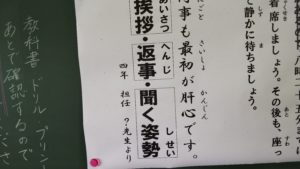 着席しましょう。その後も、座っ
て静かに待ちましょう。
何事も最初が肝心です。
挨拶・返事・聞く姿勢
四年 担任 ?先生より
教科書 ドリル プリン
あとで確認するので